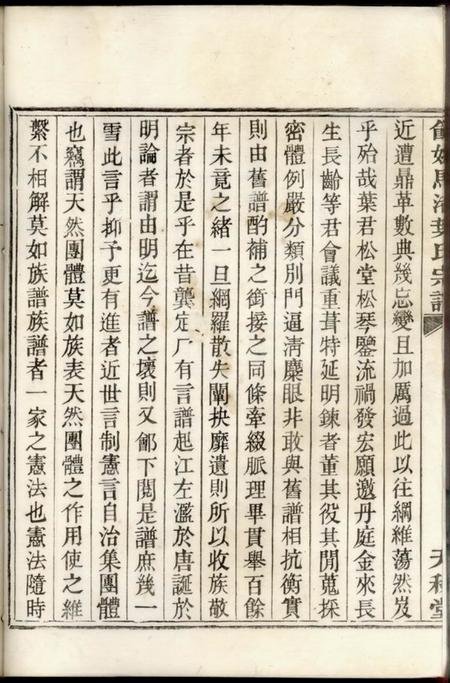 馬洛葉氏宗譜
近遭鼎革數典幾忘變且加厲過此以往綱維蕩然岌
乎殆哉葉君松堂松琴鑒流禍發宏願邀丹庭金來長
生長齡等君會議重葺特延明鍊者董其役其閒蒐採
密體例嚴分類別門逼清麋眼非敢與舊譜相抗衡實
則由舊譜酌補之銜接之同條牽綴脈理畢貫舉百餘
年未竟之緒一旦網羅散失闡抉靡遺則所以收族敬
宗者於是乎在昔龔定厂有言譜起江左濫於唐誕於
明論者謂由明迄今譜之壞則又鄶下閱是譜庶幾一
雪此言乎抑予更有進者近世言制憲言自治集團體
也竊謂天然團體莫如族表天然團體之作用使之維
繫不相解莫如族譜族譜者一家之憲法也憲法隨時